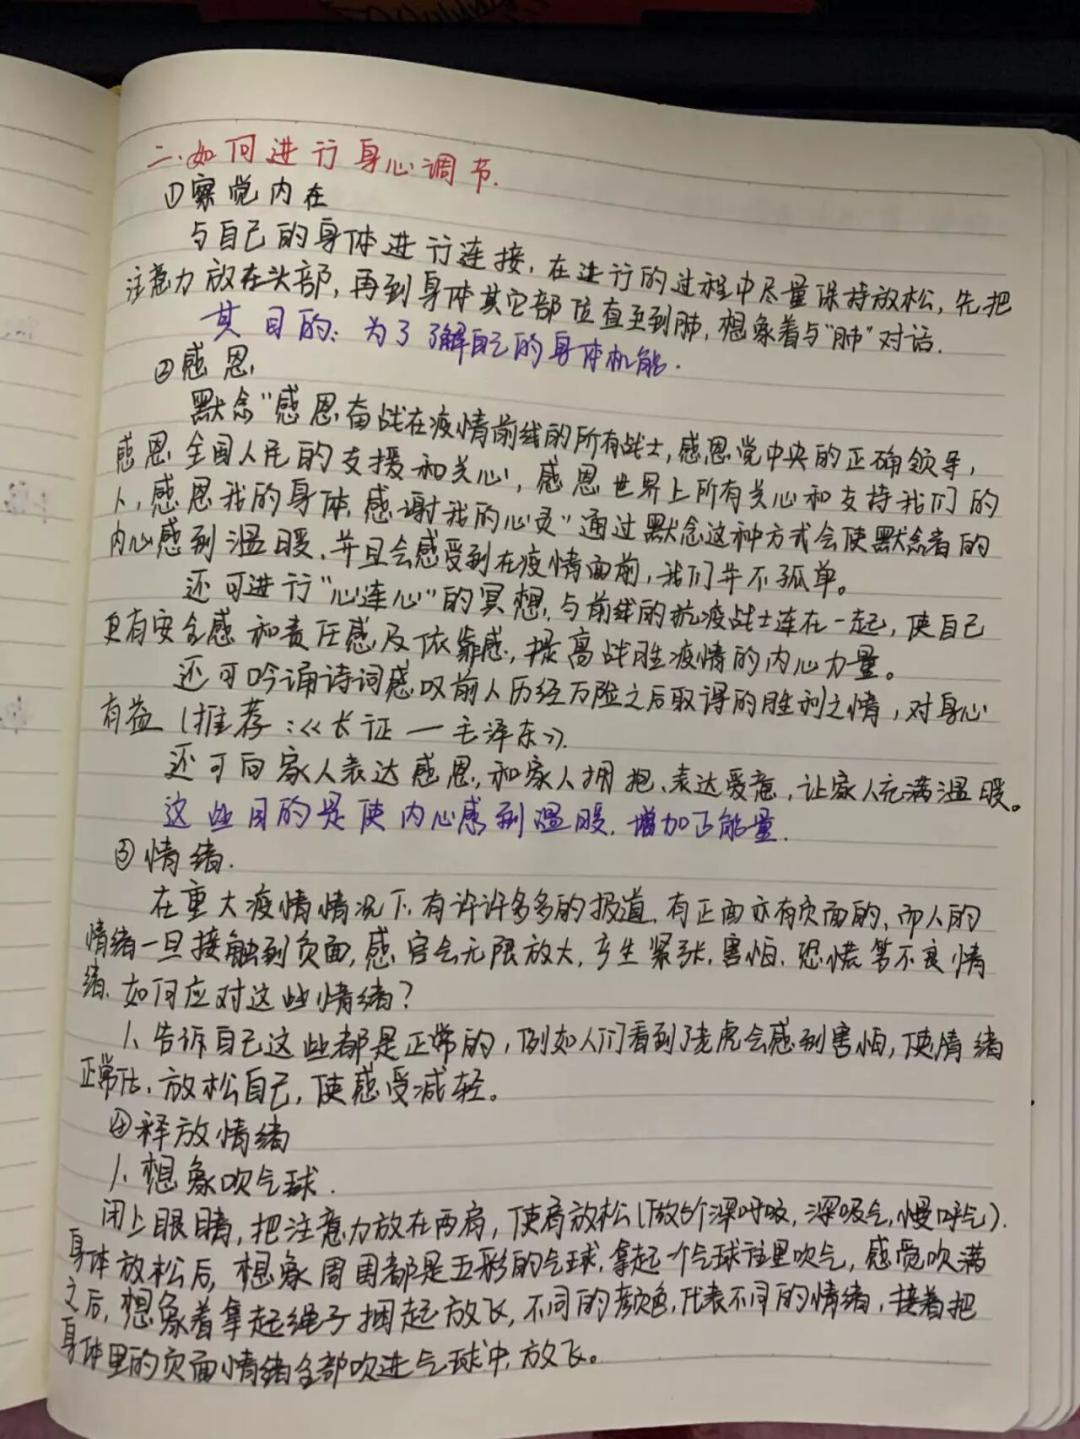 二.如何进行身心调节.
①察觉内在
与自己的身体进行连接,在进行的过程中尽量保持放松,先把
注意力放在头部,再到身体其它部位直至到肺,想象着与"肺"对话.
其目的:为了了解自己的身体机能.
②感恩.
默念"感恩奋战在疫情前线的所有战士,感恩党中央的正确领导,
感恩全国人民的支援和关心,感恩世界上所有关心和支持我们的
人,感恩我的身体,感谢我的心灵"通过默念这种方式会使默念者的
内心感到温暖.并且会感受到在疫情面前,我们并不孤单。
还可进行"心连心"的冥想,与前线的抗疫战士连在一起,使自己
更有安全感和责任感及依靠感,提高战胜疫情的内心力量。
还可吟诵诗词感叹前人历经万险之后取得的胜利之情,对身心
有益(推荐:《长征—毛泽东》).
还可向家人表达感恩,和家人拥抱、表达爱意,让家人充满温暖。
这些目的是使内心感到温暖.增加正能量.
③情绪.
在重大疫情情况下,有许许多多的报道,有正面亦有负面的,而人的
情绪一旦接触到负面,感官会无限放大,产生紧张,害怕.恐慌等不良情
绪.如何应对这些情绪?
1.告诉自己这些都是正常的,例如人们看到了老虎会感到害怕,使情绪
正常化.放松自己,使感受减轻。
④释放情绪
1.想象吹气球.
闭上眼睛,把注意力放在两肩,使肩放松(做5个深呼吸,深吸气,慢呼气).
身体放松后,想象周围都是五彩的气球,拿起一个气球往里吹气,感觉吹满
之后,想象着拿起绳子捆起放飞,不同的颜色,代表不同的情绪,接着把
身体里的负面情绪全部吹进气球中,放飞。